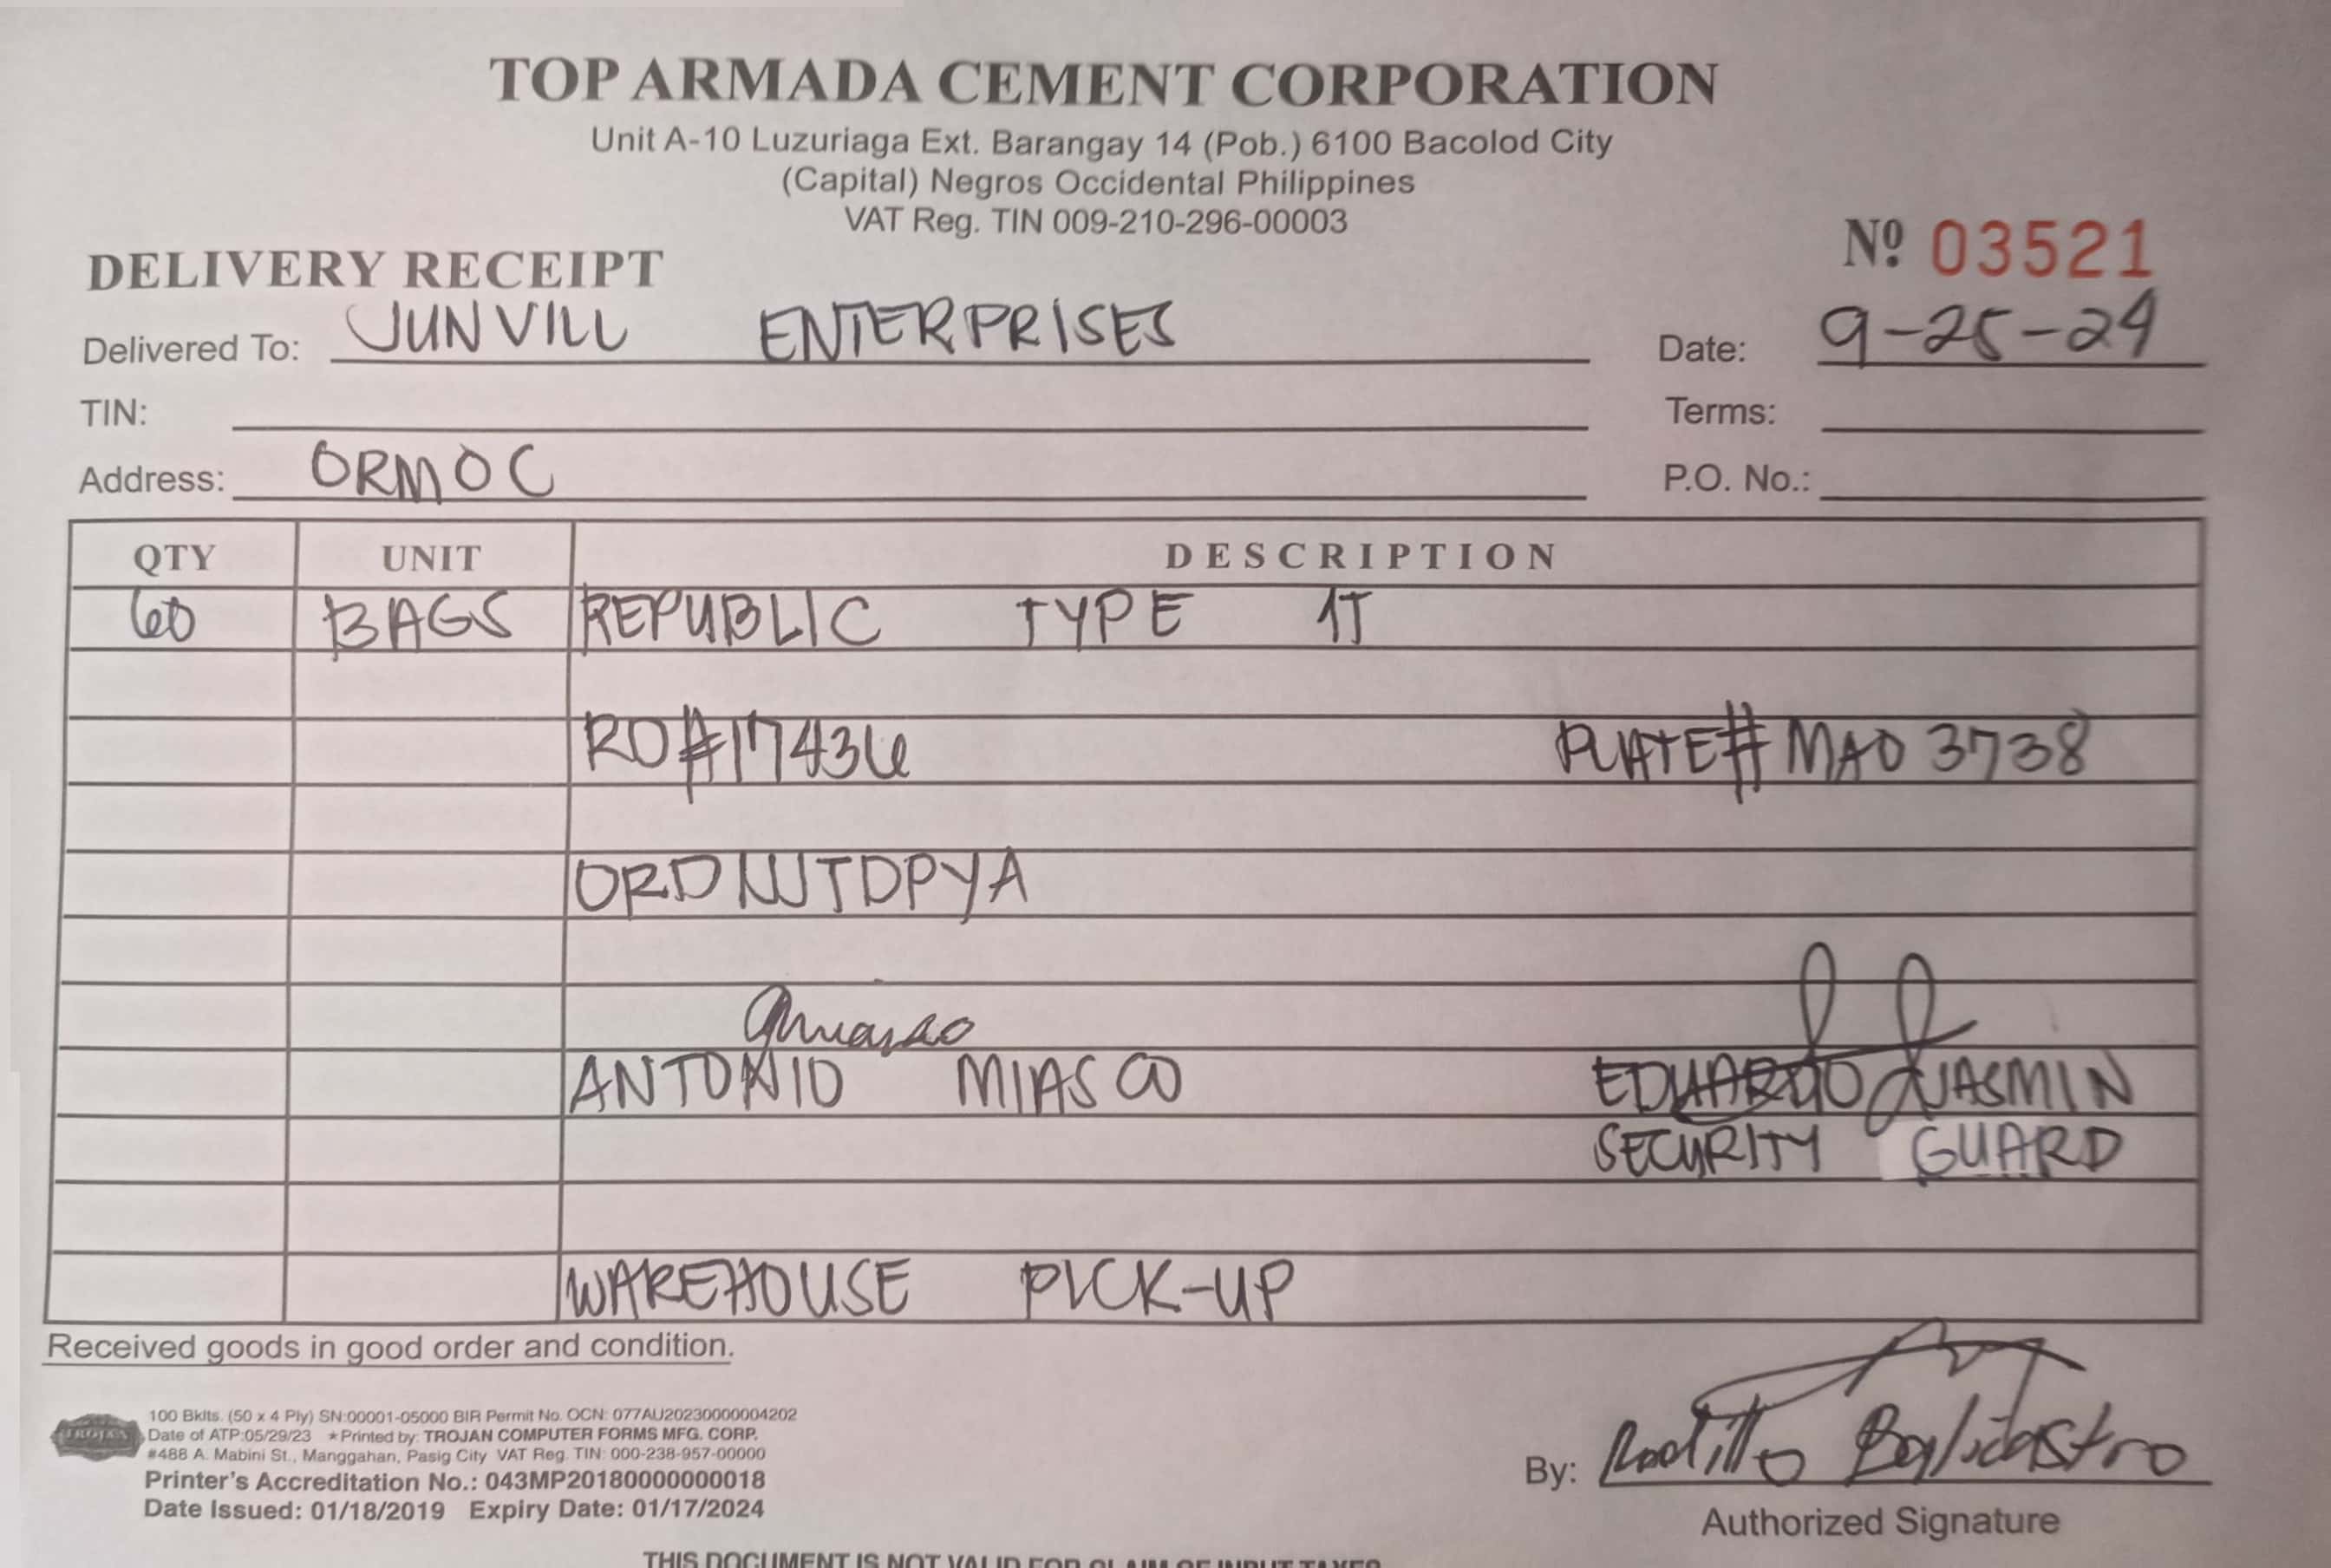 TOP ARMADA CEMENT CORPORATION
Unit A-10 Luzuriaga Ext. Barangay 14 (Pob.) 6100 Bacolod City
(Capital) Negros Occidental Philippines
VAT Reg. TIN 009-210-296-00003
Nº 03521
DELIVERY RECEIPT
Delivered To: JUNVILL ENTERPRISES
Date: 9-25-24
TIN:
Terms:
Address: ORMOC
P.O. No.:
QTY UNIT DESCRIPTION
60 BAGS REPUBLIC TYPE 1T
RO#17436 PLATE# MAO 3738
ORDNUTDPYA
ANTONIO MIASCO EDUARDO JASMIN
SECURITY GUARD
WAREHOUSE PICK-UP
Received goods in good order and condition.
TROJAN
100 Bklts. (50 x 4 Ply) SN:00001-05000 BIR Permit No. OCN: 077AU20230000004202
Date of ATP:05/29/23 ★Printed by: TROJAN COMPUTER FORMS MFG. CORP.
#488 A. Mabini St., Manggahan, Pasig City VAT Reg. TIN: 000-238-957-00000
Printer's Accreditation No.: 043MP20180000000018
Date Issued: 01/18/2019 Expiry Date: 01/17/2024
By: Balicastro
Authorized Signature
THIS DOCUMENT IS NOT VALID FOR CLAIM OF INPUT TAXES